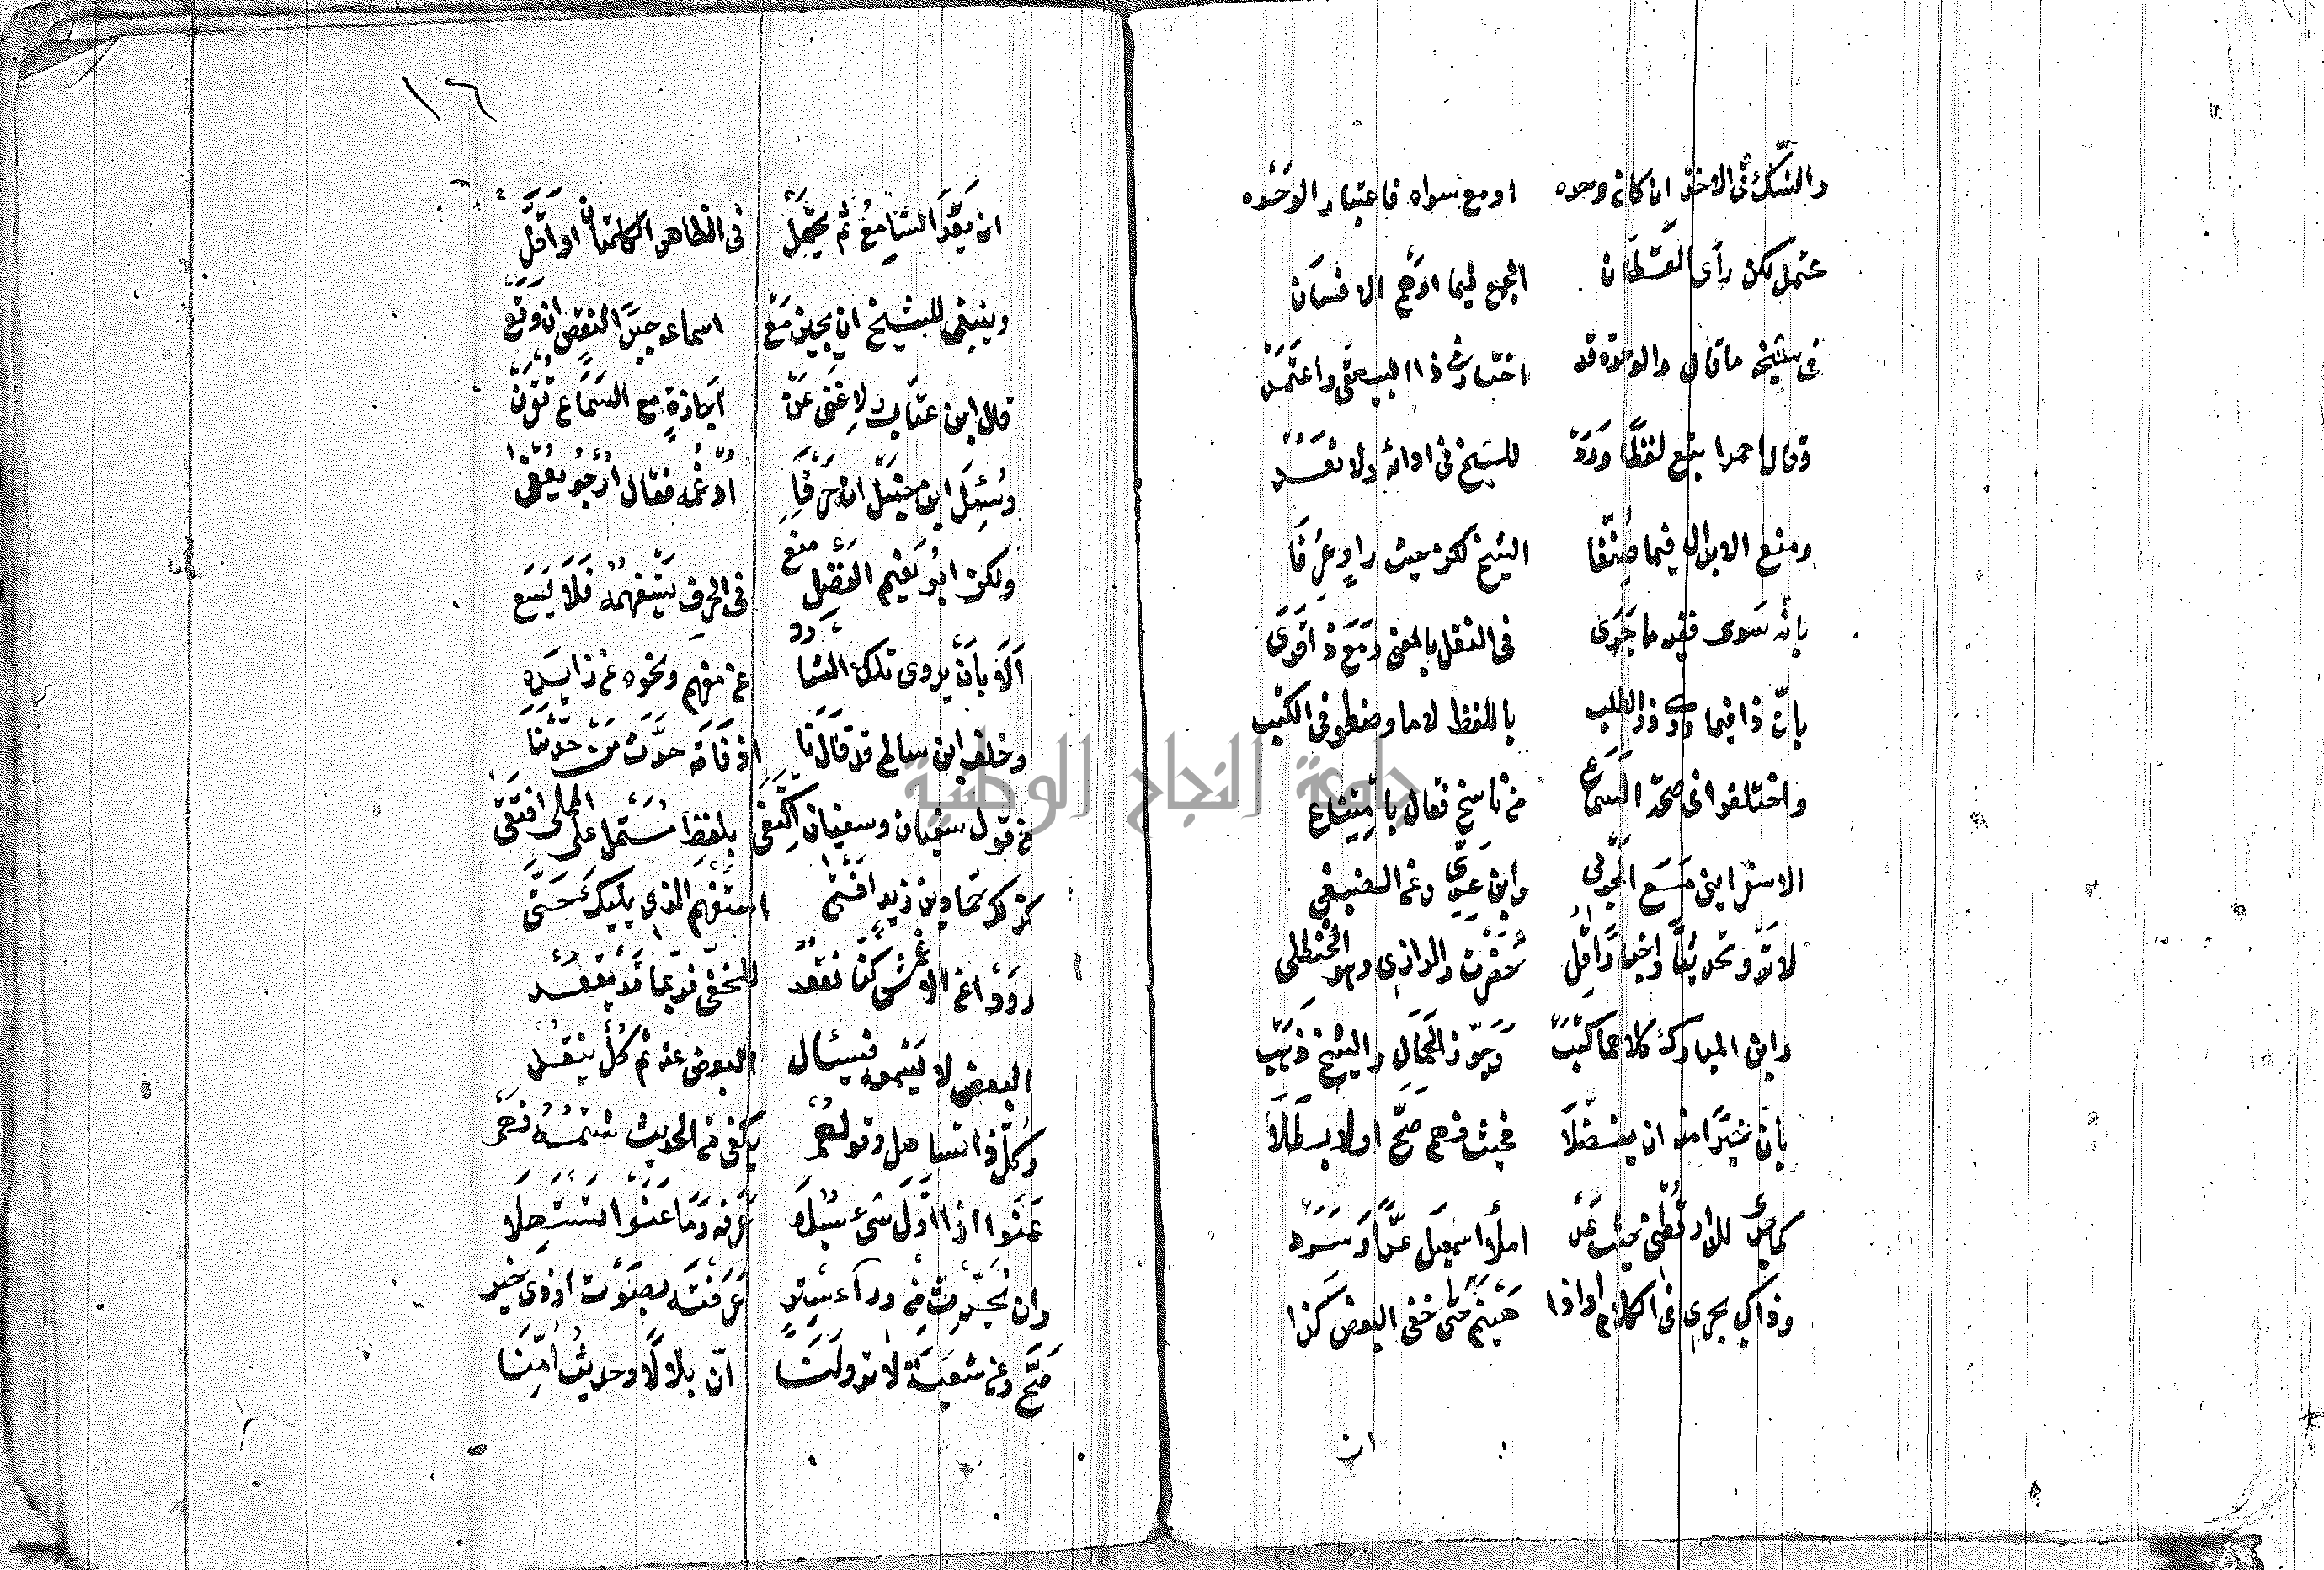 والشك في الاخذ ان كان وحده او مع سواه فاعتبار الوحده
محتمل لكن رأى القطان الجمع فيما اوهم الانسان
في شيخه ما قال والوحدة قد اختار في ذا البيهقي واعتمد
وقال احمد اتبع لفظا ورد للشيخ في ادائه ولا تعد
ومنع الابدال فيما صنفا الشيخ لكن حيث راو عرفا
بانه سوى ففيه ما جرى في النقل بالمعنى ومع ذا
بان ذا فيما روى ذو الطلب باللفظ لا ما وضعوا في الكتب
واختلفوا في صحة السماع من ناسخ فقال بامتناع
الاسفرايني مع الحربي وابن عدي وعن الصبغي
لا ترو تحديثا واخبارا قل حضرت والرازي وهو الحنظلي
وابن المبارك كلاهما كتب وجوز الحمال والشيخ ذهب
بان خيرا منه ان يفصلا فحيث فهم صح او لا بطلا
كما جرى للدارقطني حيث عد املاء اسمعيل عدا وسرد
وذاك يجري في الكلام او اذا هينم حتى خفي البعض كذا
ان
١٦
ان بعد السامع ثم يحتمل في الظاهر الكلمتان او اقل
وينبغي للشيخ ان يجيز مع اسماعه جبر النقص ان وقع
قال ابن عتاب ولا غنى عن اجازة مع السماع تقرن
وسئل ابن حنبل ان حرفا ادغمه فقال ارجو يعفى
ولكن ابو نعيم الفضل منع في الحرف يستفهمه فلا يسع
الا بان يروي تلك الشارده عن مفهم ونحوه عن زايده
وخلف ابن سالم قد قال نا اذ فاته حدث من حدثنا
من قول سفيان وسفيان اكتفى بلفظ مستمل على المملي اقتفى
كذلك حماد بن زيد افتى استفهم الذي يليك حتى
رووا عن الاعمش كنا نقعد للنخعي فربما قد يبعد
البعض لا يسمعه فيسئال البعض عنه ثم كل ينقل
وكل ذا تساهل وقولهم يكفي من الحديث شمه فهم
عنوا اذا اول شيء سئلا عرفه وما عنوا تسهلا
وان يحدث من وراء ستر عرفته بصوت او ذي خبر
صح وعن شعبة لا ترو ولنا ان بلالا وحديث امنا
جامعة النجاح الوطنية